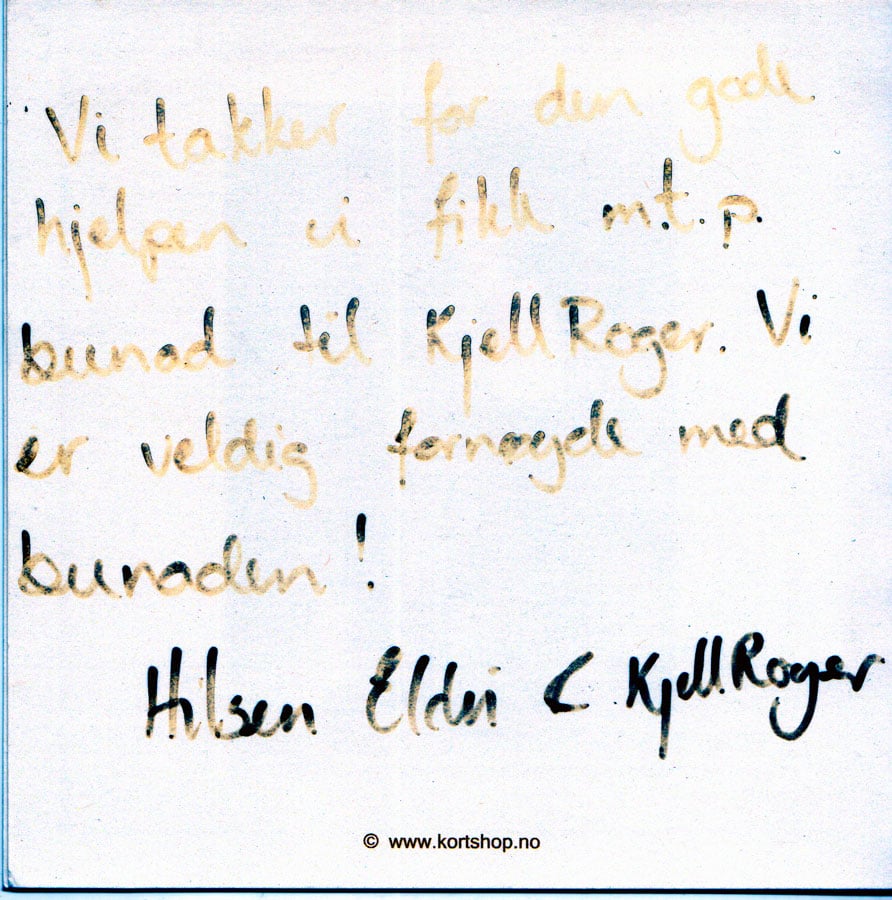 Vi takker for den gode
hjelpen vi fikk m.t.p.
bunad til Kjell Roger. Vi
er veldig fornøyde med
bunaden!
Hilsen Eldri & Kjell Roger
© www.kortshop.no